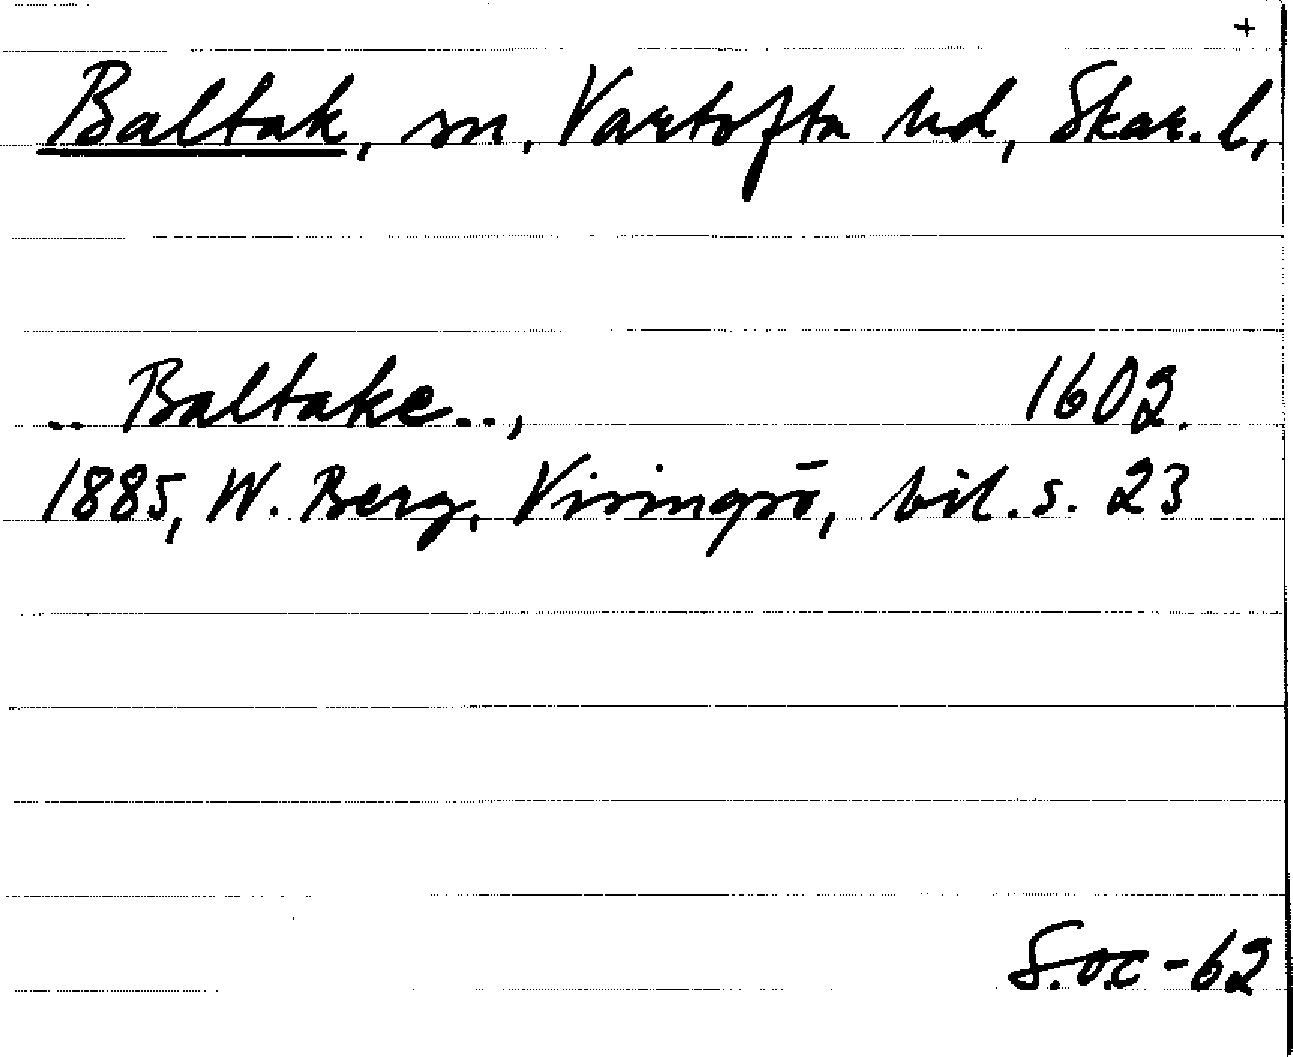 +
Baltak, sn, Vartofta hd, Skar. l,
.. Baltake.., 1602.
1885, W. Berg, Visingsö, bil. s. 23
S.O.C -62